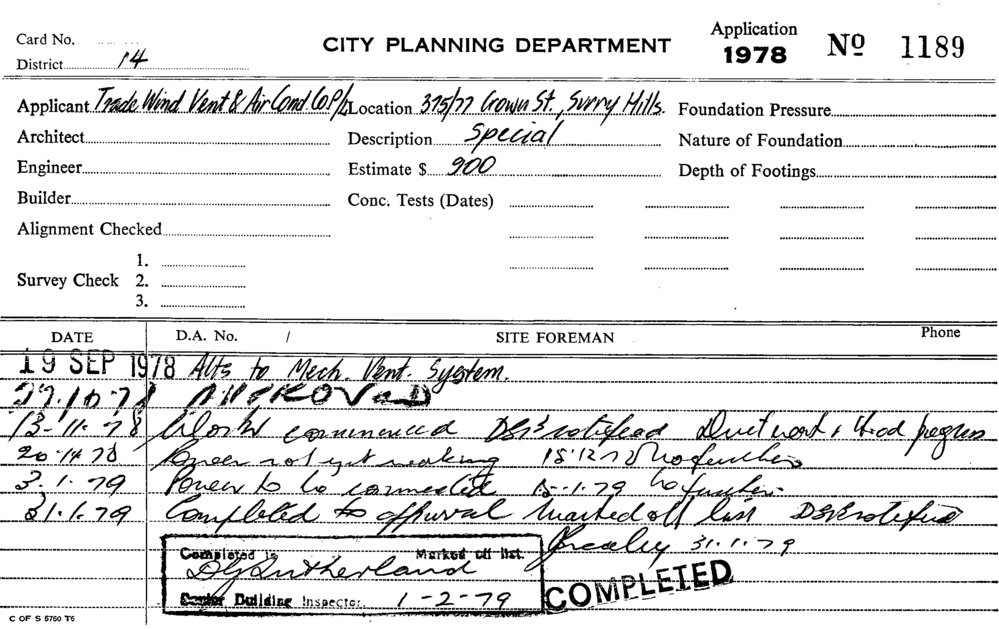 Card No.
CITY PLANNING DEPARTMENT
Application 1978 Nº 1189
District 14
Applicant Trade Wind Vent & Air Cond Co P/L Location 375/77 Crown St., Surry Hills. Foundation Pressure
Architect Description Special Nature of Foundation
Engineer Estimate $ 900 Depth of Footings
Builder Conc. Tests (Dates)
Alignment Checked
1.
Survey Check 2.
3.
DATE D.A. No. / SITE FOREMAN Phone
19 SEP 1978 Alts to Mech. Vent. System.
27.10.78 APPROVED
13-11-78 Works commenced DSI notified Duct work & Hood progress
78 Power not yet working 15.12.78 No further
3.1.79 Power to be connected 15-1.79 No further
31.1.79 Completed to approval Marked off list DSI notified
31.1.79
Completed is Marked off list.
DG Sutherland
Senior Building Inspector. 1-2-79
COMPLETED
C OF S 5750 T6